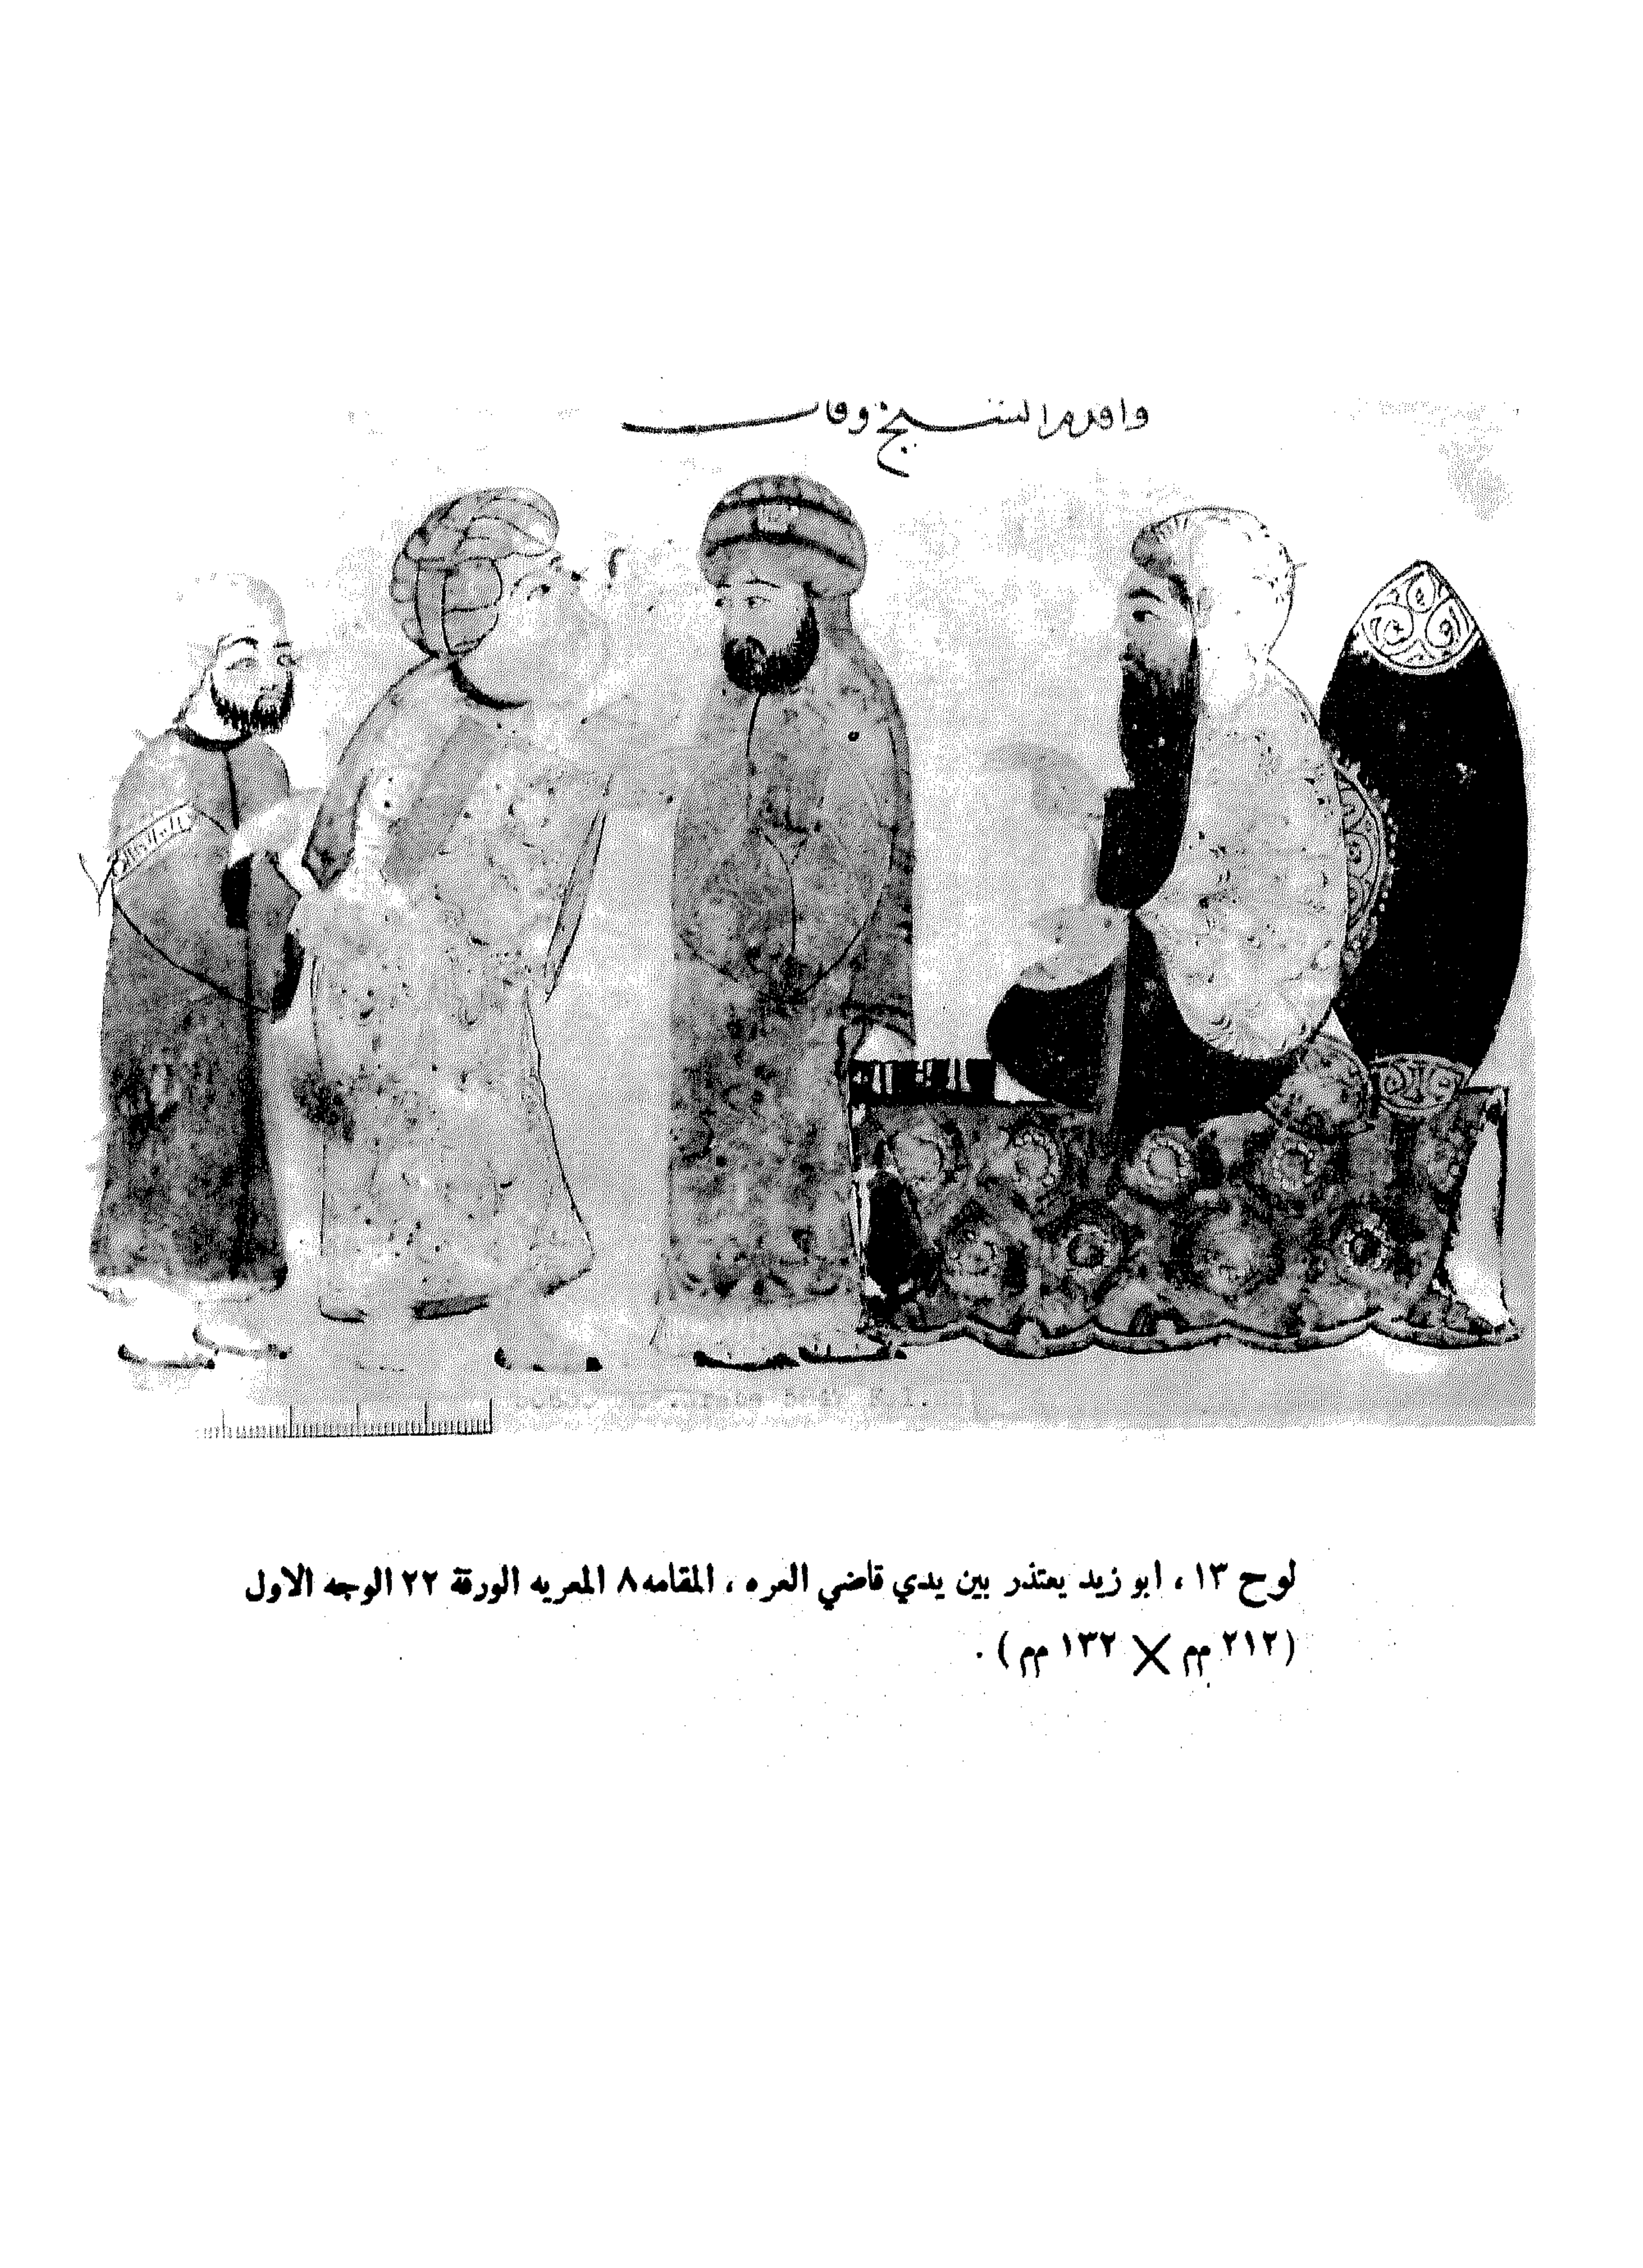 وا قدم الشيخ وقال
لوح ١٣ ، ابو زيد يعتذر بين يدي قاضي العره ، المقامه ٨ المعريه الورقة ٢٢ الوجه الاول
(٢١٢ مم X ١٣٢ مم) .